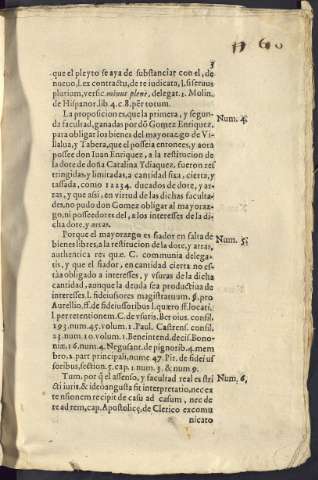 3
que el pleyto se aya de substanciar con el, de
nueuo, l. ex contractu, de re iudicata, l. si seruus
plurium, versic. nobuus plenè, delegat. 1. Molin.
de Hispanor. lib. 4. c. 8. per totum.
La proposicion es, que la primera, y segun-
da facultad, ganadas por dō Gomez Enriquez,
para obligar los bienes del mayorazgo de Vi-
llalua, y Tabera, que el posseìa entonces, y aora
possee don Iuan Enriquez, a la restitucion de
la dote de doña Catalina Ydiaquez, fueron res
tringidas, y limitadas, a cantidad fixa, cierta, y
tassada, como 12234. ducados de dote, y ar-
ras, y que assi, en virtud de las dichas faculta-
des, no pudo don Gomez obligar al mayoraz-
go, ni posseedores del, a los interesses de la di-
cha dote, y arras.
Num. 4.
Porque el mayorazgo es fiador en falta de
bienes libres, a la restitucion de la dote, y arras,
authentica res que. C. communia delega-
tis, y que el fiador, en cantidad cierta no es-
tà obligado a interesses, y vsuras de la dicha
cantidad, aunque la deuda sea productiua de
interesses. l. fideiussores magistratuum. §. pro
Aurellio, ff. de fideiussoribus l. quæro ff. locati,
l. per retentionem. C. de vsuris. Beroius. consil.
193. num. 45. volum. 1. Paul. Castrens. consil.
23. num. 10. volum. 1. Beneintend. decis. Bono-
niæ. 16. num. 4. Negusant. de pignorib. 4. mem
bro. 2. part. principali, nume 47. Pir. de fideiuf
soribus, section. 5. cap. 1. num. 3. & num. 9.
Num. 5.
Tum. por q̃ el assenso, y facultad real es stri
cti iuris. & ideo angusta fit interpretatio, nec ex
tensionem recipit de casu ad casum, nec de
re ad rem, cap. Apostolicę, de Clerico excomu
Num. 6.
nicato